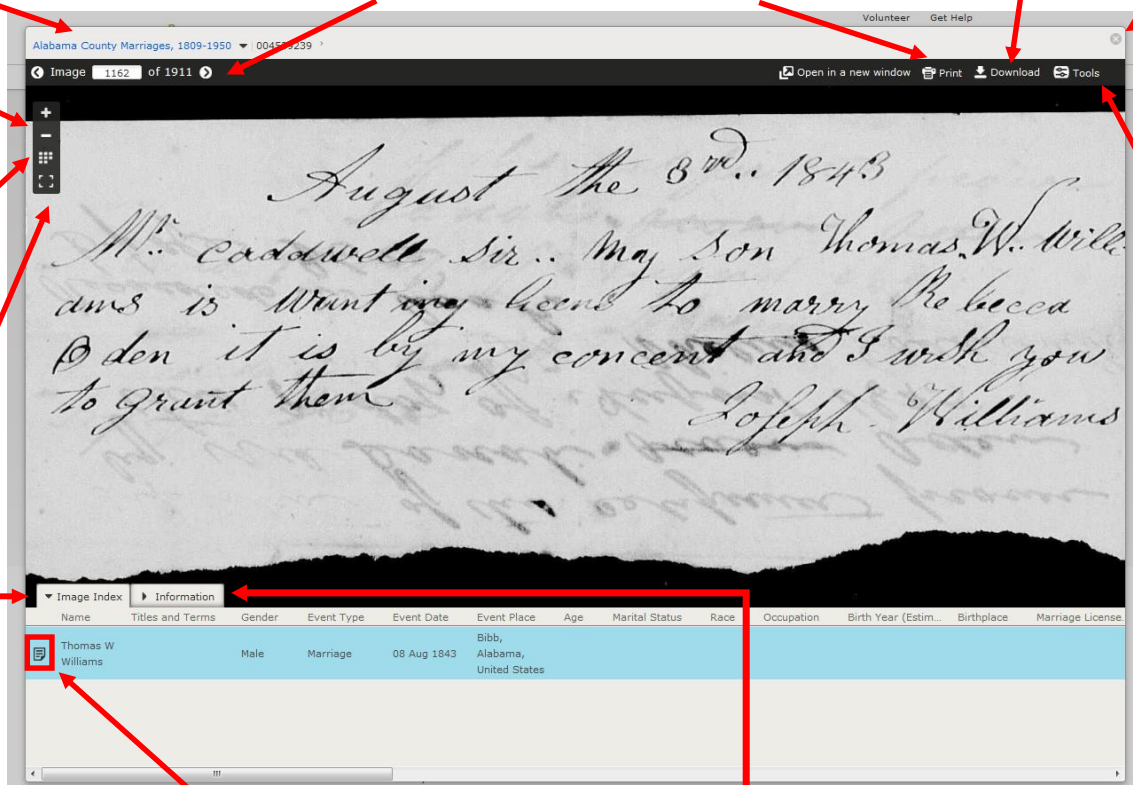 Volunteer Get Help
Alabama County Marriages, 1809-1950 004539239
Image 1162 of 1911 Open in a new window Print Download Tools
August the 3rd.. 1843
Mr. caddwell sir.. may son Thomas. W. Willi
ams is wunting licens to marry Rebecca
Oden it is by my concent and I wish you
to grant them
Joseph Williams
Image Index Information
Name Titles and Terms Gender Event Type Event Date Event Place Age Marital Status Race Occupation Birth Year (Estim... Birthplace Marriage License
Thomas W Williams Male Marriage 08 Aug 1843 Bibb, Alabama, United States